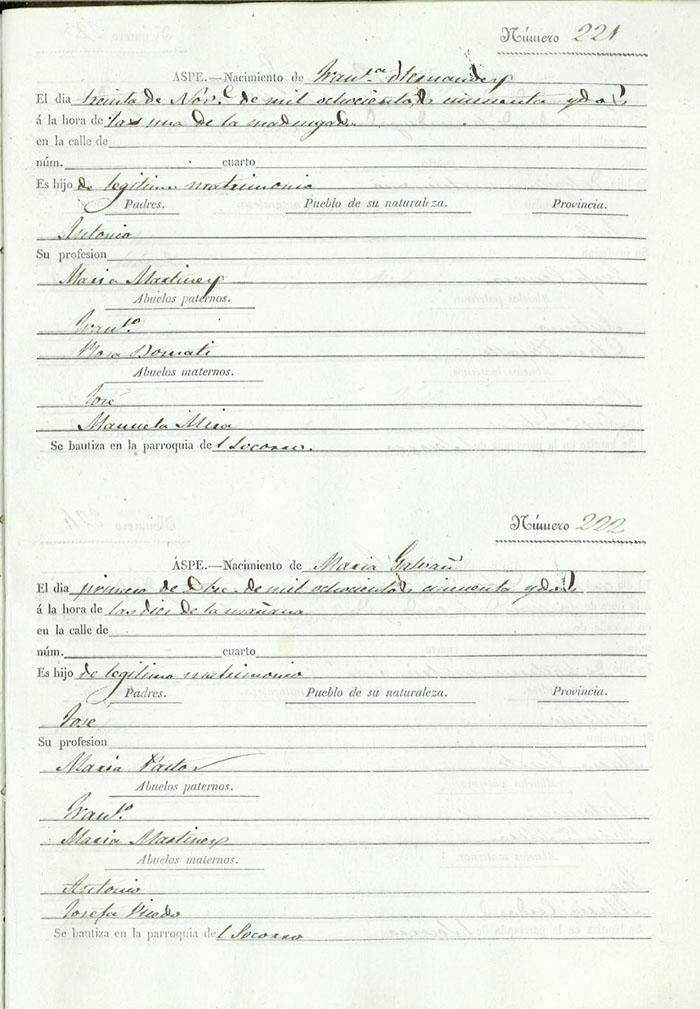 Número 221
ASPE.—Nacimiento de Fran.ca Hernandez
El dia treinta de Nov.e de mil ochocientos cincuenta y dos
á la hora de las una de la madrugada
en la calle de
núm. cuarto
Es hijo de legitimo matrimonio
Padres. Pueblo de su naturaleza. Provincia.
Antonio
Su profesion
Maria Martinez
Abuelos paternos.
Fran.co
Rosa Bornati
Abuelos maternos.
José
Manuela Mira
Se bautiza en la parroquia del Socorro.
Número 222
ÁSPE.—Nacimiento de Maria Galvañ
El dia primero de Dbre. de mil ochocientos cincuenta y dos
á la hora de las diez de la mañana
en la calle de
núm. cuarto
Es hijo de legitimo matrimonio
Padres. Pueblo de su naturaleza. Provincia.
Jose
Su profesion
Maria Pastor
Abuelos paternos.
Fran.co
Maria Martinez
Abuelos maternos.
Antonio
Josefa
Se bautiza en la parroquia del Socorro